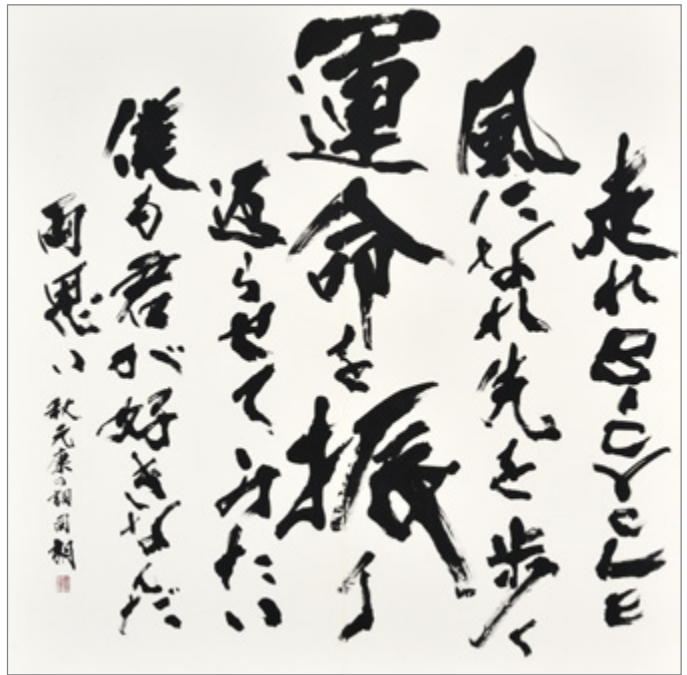 走れBicycle
風になれ先を歩く
運命を振り
返らせてみたい
僕も君が好きなんだ
両思い
秋元康の詞